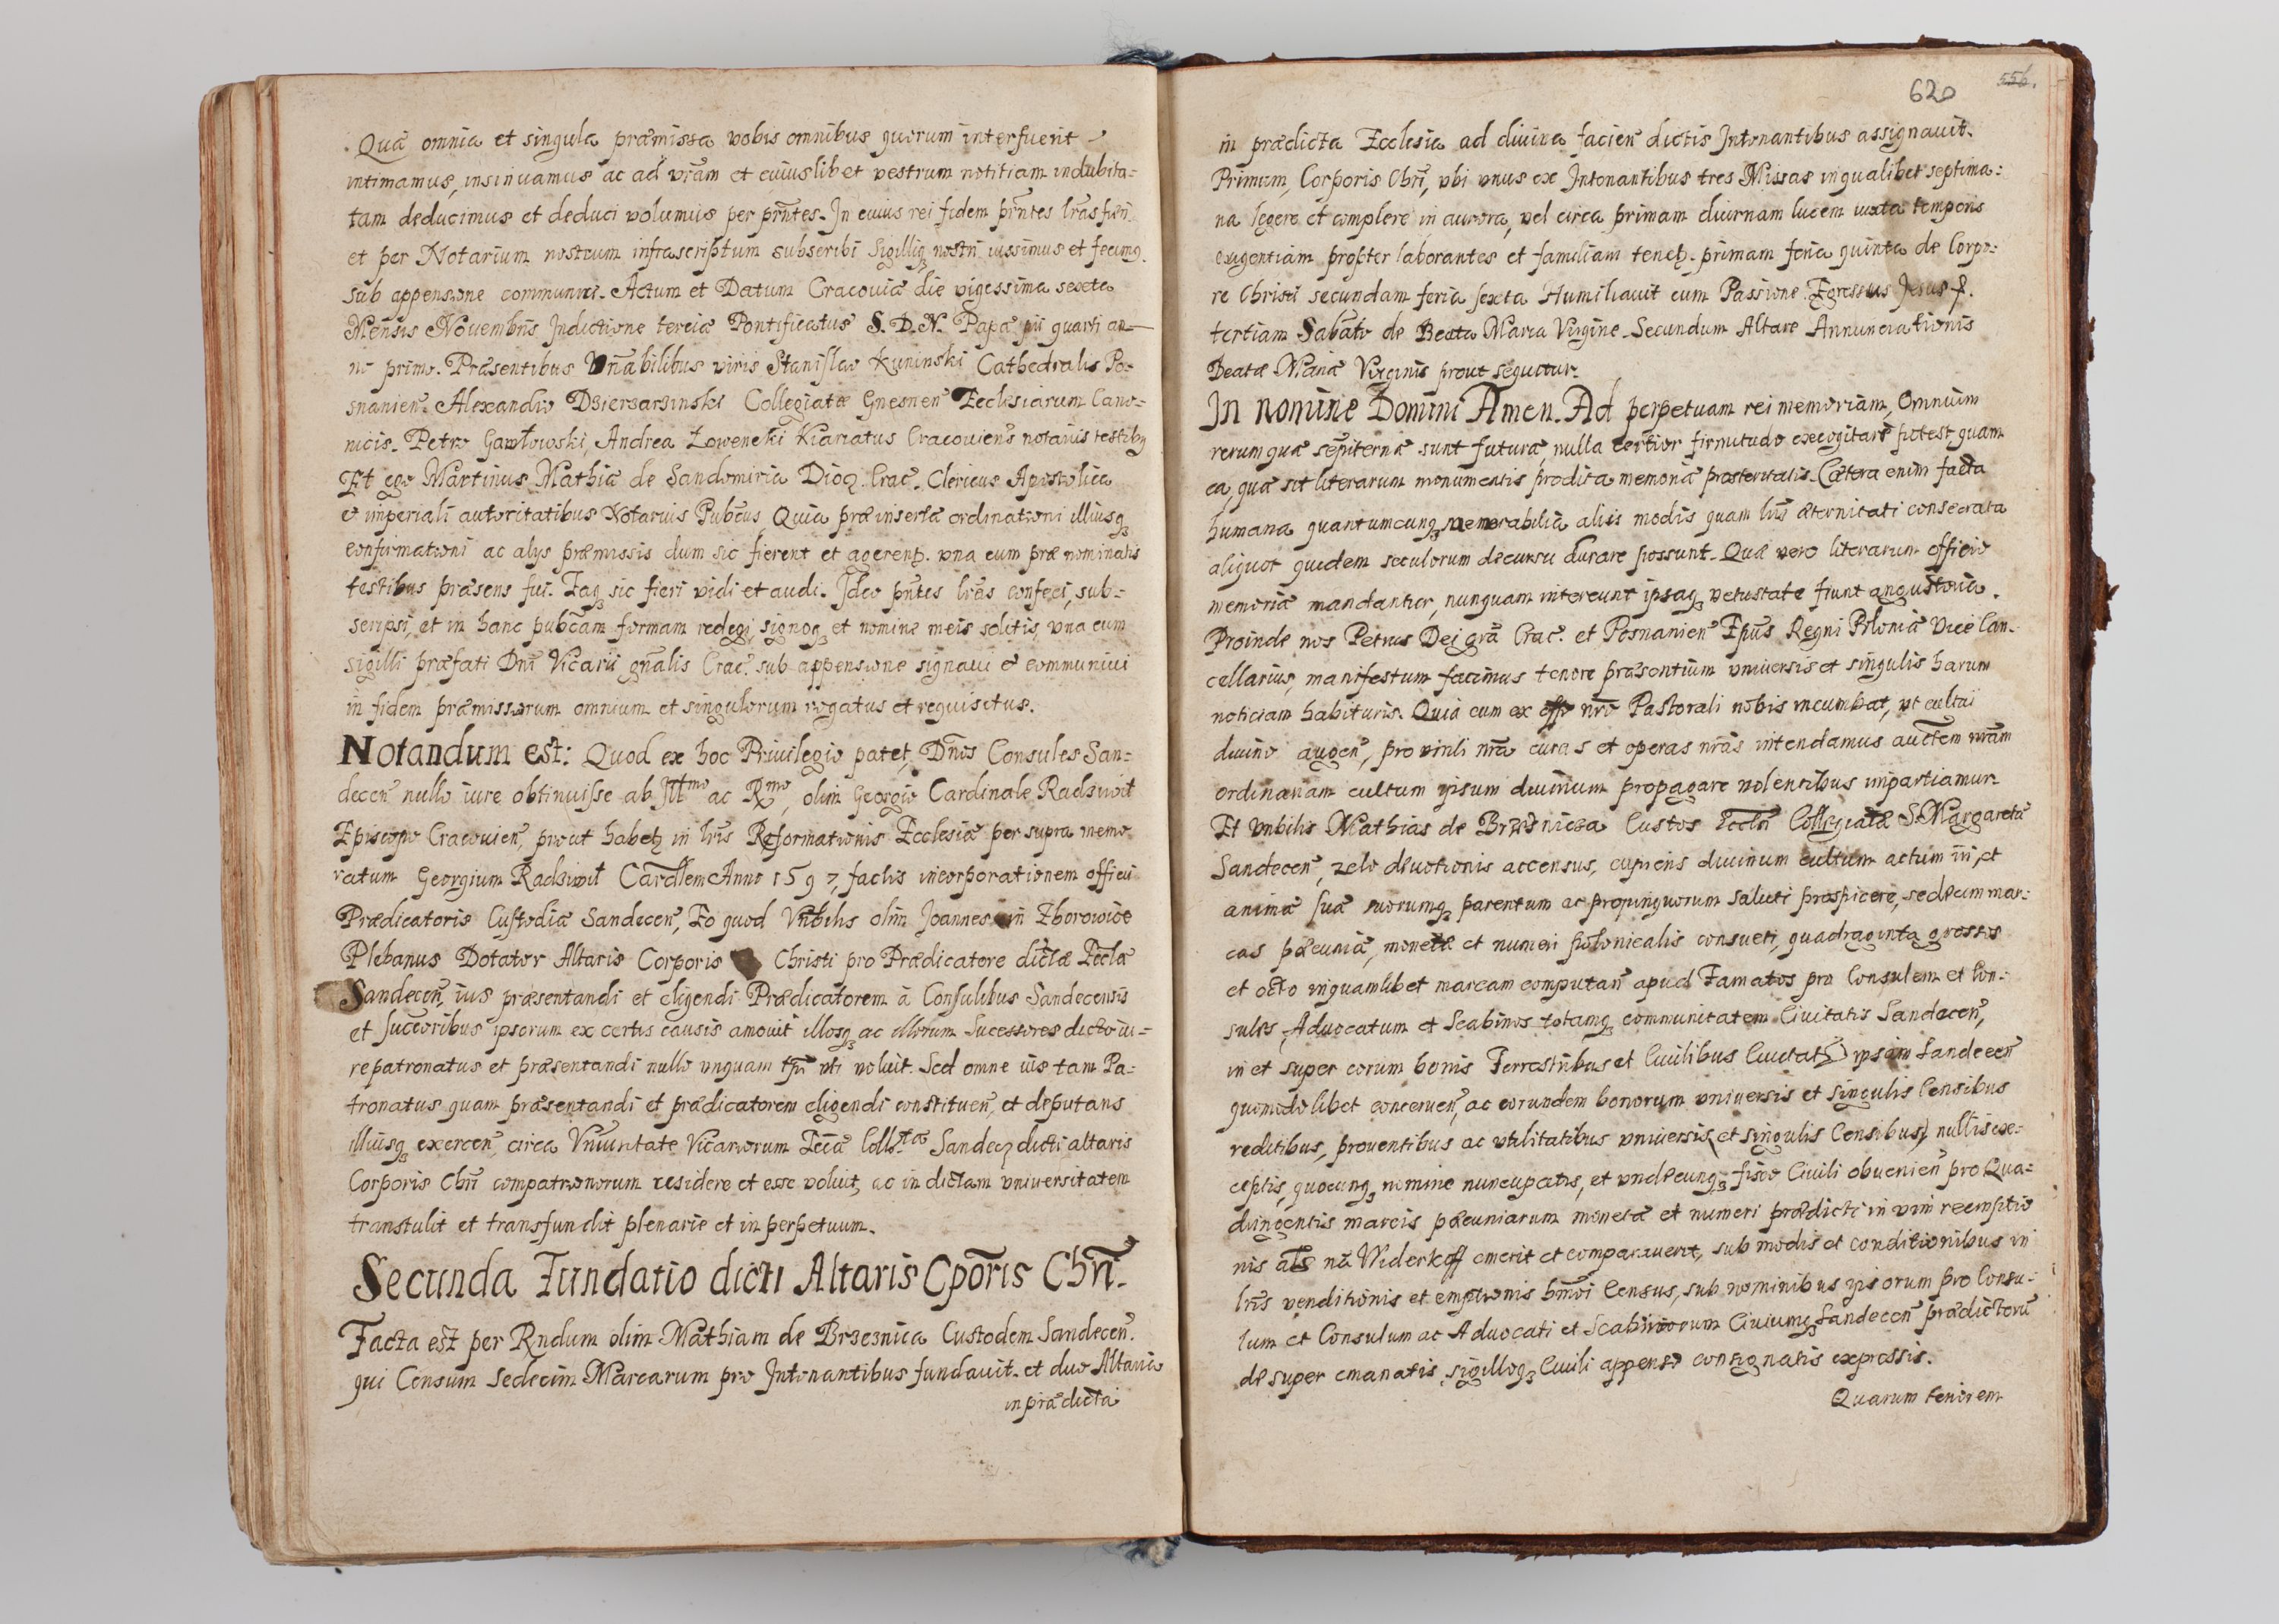 Quæ omnia et singula præmissa vobis omnibus quorum interfuerit
intimamus, insinuamus ac ad vr̃am et cuiuslibet vestrum notitiam indubita=
tam deducimus et deduci volumus per pr̃ntes. In cuius rei fidem pr̃ntes lr̃as fieri
et per Notarium nostrum infrascriptum subscribi Sigilliq₃ nostri iussimus et fecimꝯ
sub appensione communiri. Actum et Datum Cracoviæ die vigessima sexta
Mensis Novembris Indictione tercia Pontificatus S. D. N. Papæ pii quarti an—
no primo. Præsentibus Vñabilibus viris Stanislao Kuninski Cathedralis Po=
snanieñ. Alexandro Dzierzarzinski Collegiatæ Gnesneñ Ecclesiarum Cano=
nicis. Petro Gawłowski, Andrea Loweneki Cracovieñs notariis testibꝯ
Et ego Martinus Mathiæ de Sandomiria Dioc̨. Crac̃. Clericus Apostolica
et imperiali autoritatibus Notarius Pub̃cus, Quia præinsertæ ordinationi illiusq₃
confirmationi ac alys præmissis dum sic fierent et agerent̨. una cum præ nominatis
testibus præsens fui. Eaq₃ sic fieri vidi et audi. Ideo pñtes lr̃as confeci, sub=
scripsi, et in hanc pub̃cam formam redegi, signoq₃ et nomine meis solitis, una cum
sigilli præfati Dñi Vicarii gñalis Crac̃. sub appensione signavi et communivi
in fidem præmissorum omnium et singulorum rogatus et requisitus.
Notandum est: Quod ex hoc Privilegio patet, Dños Consules San=
deceñ nullo iure obtinuisse ab Illmo ac Rmo, olim Georgio Cardinale Radziwił
Episcopo Cracovieñ, prout habet̨ in lr̃is Reformationis Ecclesiæ per supra memo
ratum Georgium Radziwił Cardlem Anno 1597, factis incorporationem officii
Prædicatoris Custodiæ Sandeceñ, Eo quod Vñbilis olim Joannes in Zborowice
Plebanus Dotator Altaris Corporis Christi pro Prædicatore dictæ Eccl̃æ
Sandeceñ, ius præsentandi et eligendi Prædicatorem à Consulibus Sandecensis
et succoribus ipsorum ex certis causis amovit illosq₃ ac illorum Sucessores dicto iu=
repatronatus et præsentandi nullo unquam tp̃ri uti voluit. Sed omne ius tam Pa=
tronatus quam præsentandi et prædicatorem eligendi constitueñ, et deputans
illiusq₃ exerceñ, circa Vñiuritate Vicariorum Ecc̃æ Coll.tæ Sandec̨ dicti altaris
Corporis Chr̃i compatronorum residere et esse voluit, ac in dictam universitatem
transtulit et transfundit plenarie et in perpetuum.
Secunda Fundatio dicti Altaris Cpõris Chr̃i.
Facta est per Rndum olim Mathiam de Brzeznica Custodem Sandeceñ.
qui Censum Sedecim Marcarum pro Intonantibus fundavit. et duo Altaria
in prædicta
620 556.
in prædicta Ecclesia ad divina facieñ dictis Intonantibus assignavit.
Primum, Corporis Chr̃i, ubi unus ex Intonantibus tres Missas in qualibet septima=
na legere et complere in aurora, vel circa primam diurnam lucem iuxta temporis
exigentiam propter laborantes et familiam tenet̨. primam feria quinta de Corpo=
re Christi secundam feria sexta Humiliavit cum Passione Egressus Jesus p.
tertiam Sabato de Beata Maria Virgine. Secundum Altare Annunciationis
Beatæ Mariæ Virginis prout sequitur.
In nomine Domini Amen. Ad perpetuam rei memoriam, Omnium
rerum quæ sempiternæ sunt futuræ, nulla certior firmitudo excogitari potest quam
ea, quæ sit literarum monumentis prodita memoriæ posteritatis. Cætera enim facta
humana quantumcunq₃ memorabilia aliis modis quam lr̃is æternitati consecrata
aliquot quidem seculorum decursu durare possunt. Quæ vero literarum officio
memoriæ mandantur, nunquam intereunt ipsaq₃ vetustate fiunt angustiora.
Proinde nos Petrus Dei grã Crac̃. et Posnanieñ Ep̃us Regni Poloniæ Vice Can=
cellarius, manifestum facimus tenore præsentium universis et singulis harum
noticiam habituris. Quia cum ex offo nr̃o Pastorali nobis incumbat, ut cultui
divino augeñ, pro virili nr̃a curas et operas nr̃as intendamus auctem nr̃am
ordinariam cultum ipsum divinum propagare volentibus impartiamur.
Et Vnbilis Mathias de Brzeznicza Custos Eccl̃æ Collegiatæ S. Margaretæ
Sandeceñ, zelo devotionis accensus, cupiens divinum cultum actum iri, et
animæ suæ suorumq₃ parentum ac propinquorum saluti prospicere, sedecim mar=
cas pæcuniæ, monetæ et numeri polonicalis consueti, quadraginta grossos
et octo in quamlibet marcam computañ apud Famatos pro Consulem et Con=
sules, Advocatum et Scabinos totamq₃ communitatem Civitatis Sandeceñ,
in et super eorum bonis Terrestribus et Civilibus Civitatis ipsam Sandeceñ
quomodolibet concerneñ, ac eorundem bonorum universis et singulis Censibus
reditibus, proventibus ac utilitatibus universis (et singulis Censibus) nullis exe=
ceptis, quocunq₃ nomine nuncupatis, et undecunq₃ fisco Civili obvenieñ pro Qua=
dringentis marcis pæcuniarum monetæ et numeri prædicti in vim reemptio
nis als na Widerkoff emerit et comparaverit, sub modis et conditionibus in
lr̃is venditionis et emptionis hm̃oi Census, sub nominibus ipsorum pro Consu=
lum et Consulum ac Advocati et Scabinorum Civiumq₃ Sandeceñ prædictorũ
desuper emanatis, sigilloq₃ Civili appenso consignatis expressis.
Quarum tenorem